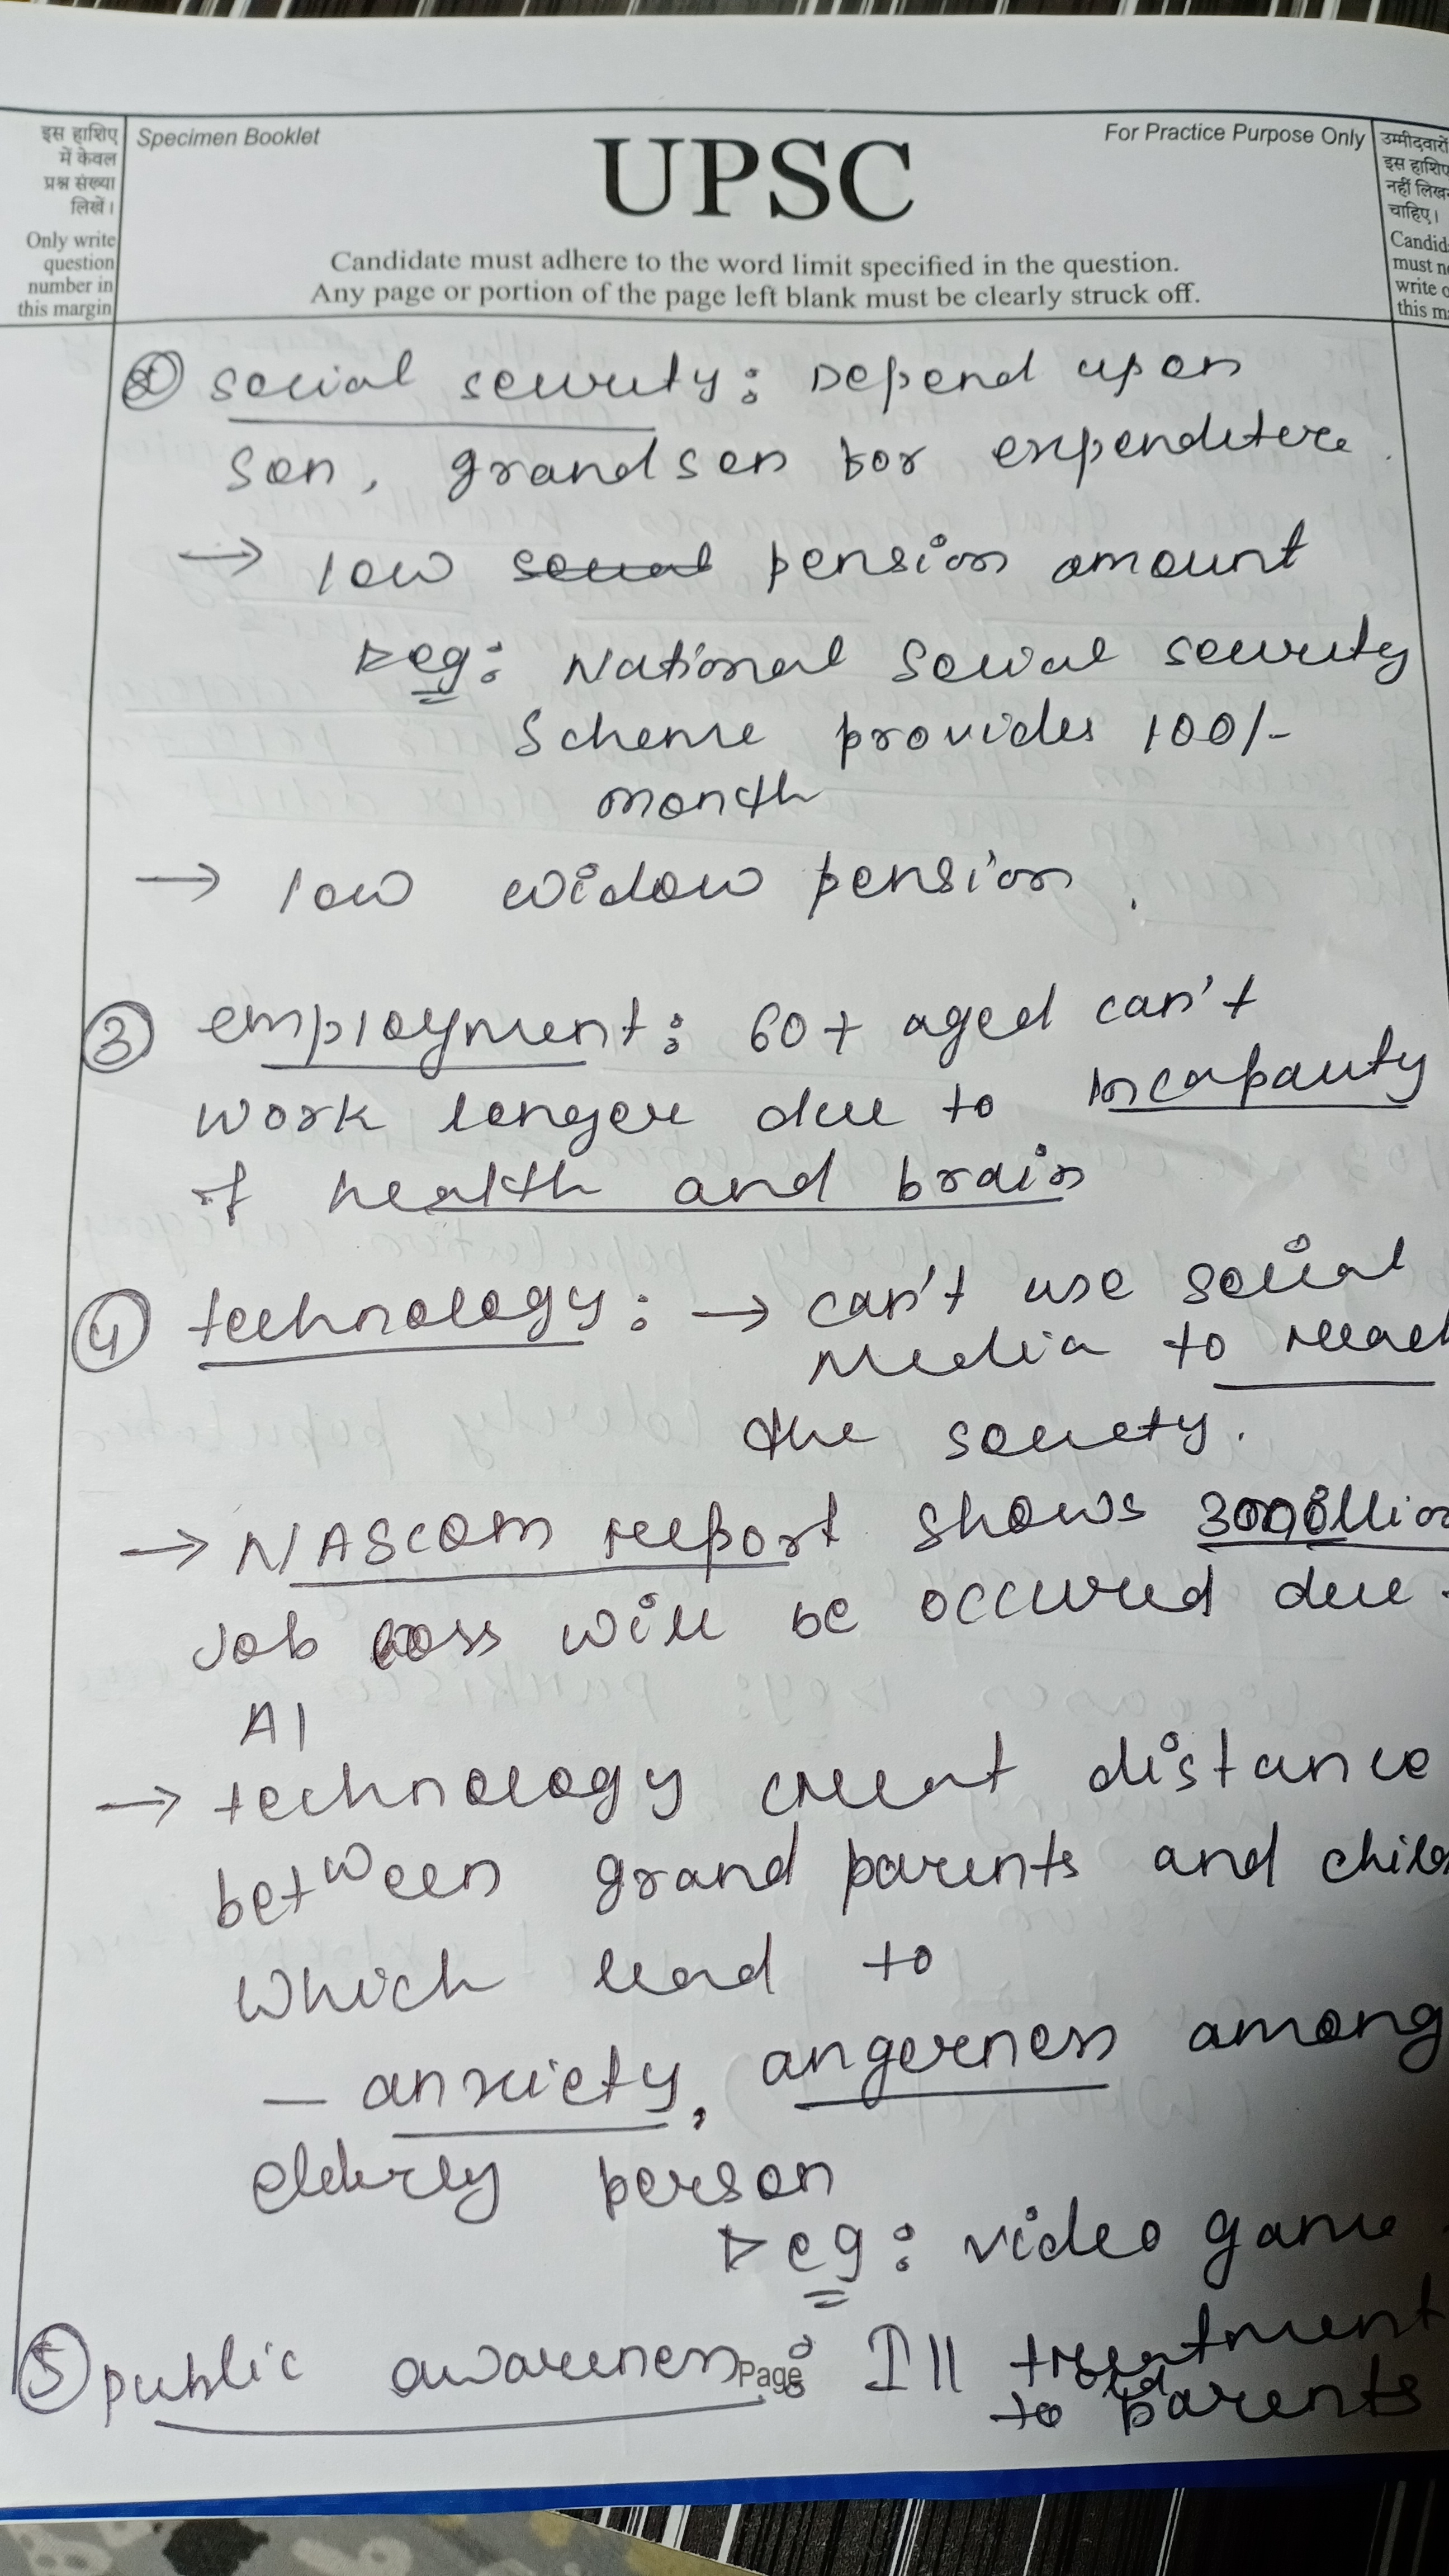 इस हाशिए
में केवल
प्रश्न संख्या
लिखें।
Only write
question
number in
this margin
Specimen Booklet
UPSC
For Practice Purpose Only
Candidate must adhere to the word limit specified in the question.
Any page or portion of the page left blank must be clearly struck off.
उम्मीदवारों
इस हाशिए
नहीं लिखन
चाहिए।
Candid
must n
write o
this m
② social security: Depend upon
son, grandson for expenditere.
→ low social pension amount
eg: National Social security
Scheme provides 100/-
month
→ low widow pension.
③ employment: 60+ aged can't
work longer due to Incapacity
of health and brain
④ technology: → can't use social
Media to reach
the society.
→ NASCOM report shows 300 million
Job loss will be occured due
AI
→ technology creat distance
between grand parents and child
which lead to
– anxiety, angerness among
elderly person
eg: video game
⑤ public awareness: Ill treatment
to old parents
Page